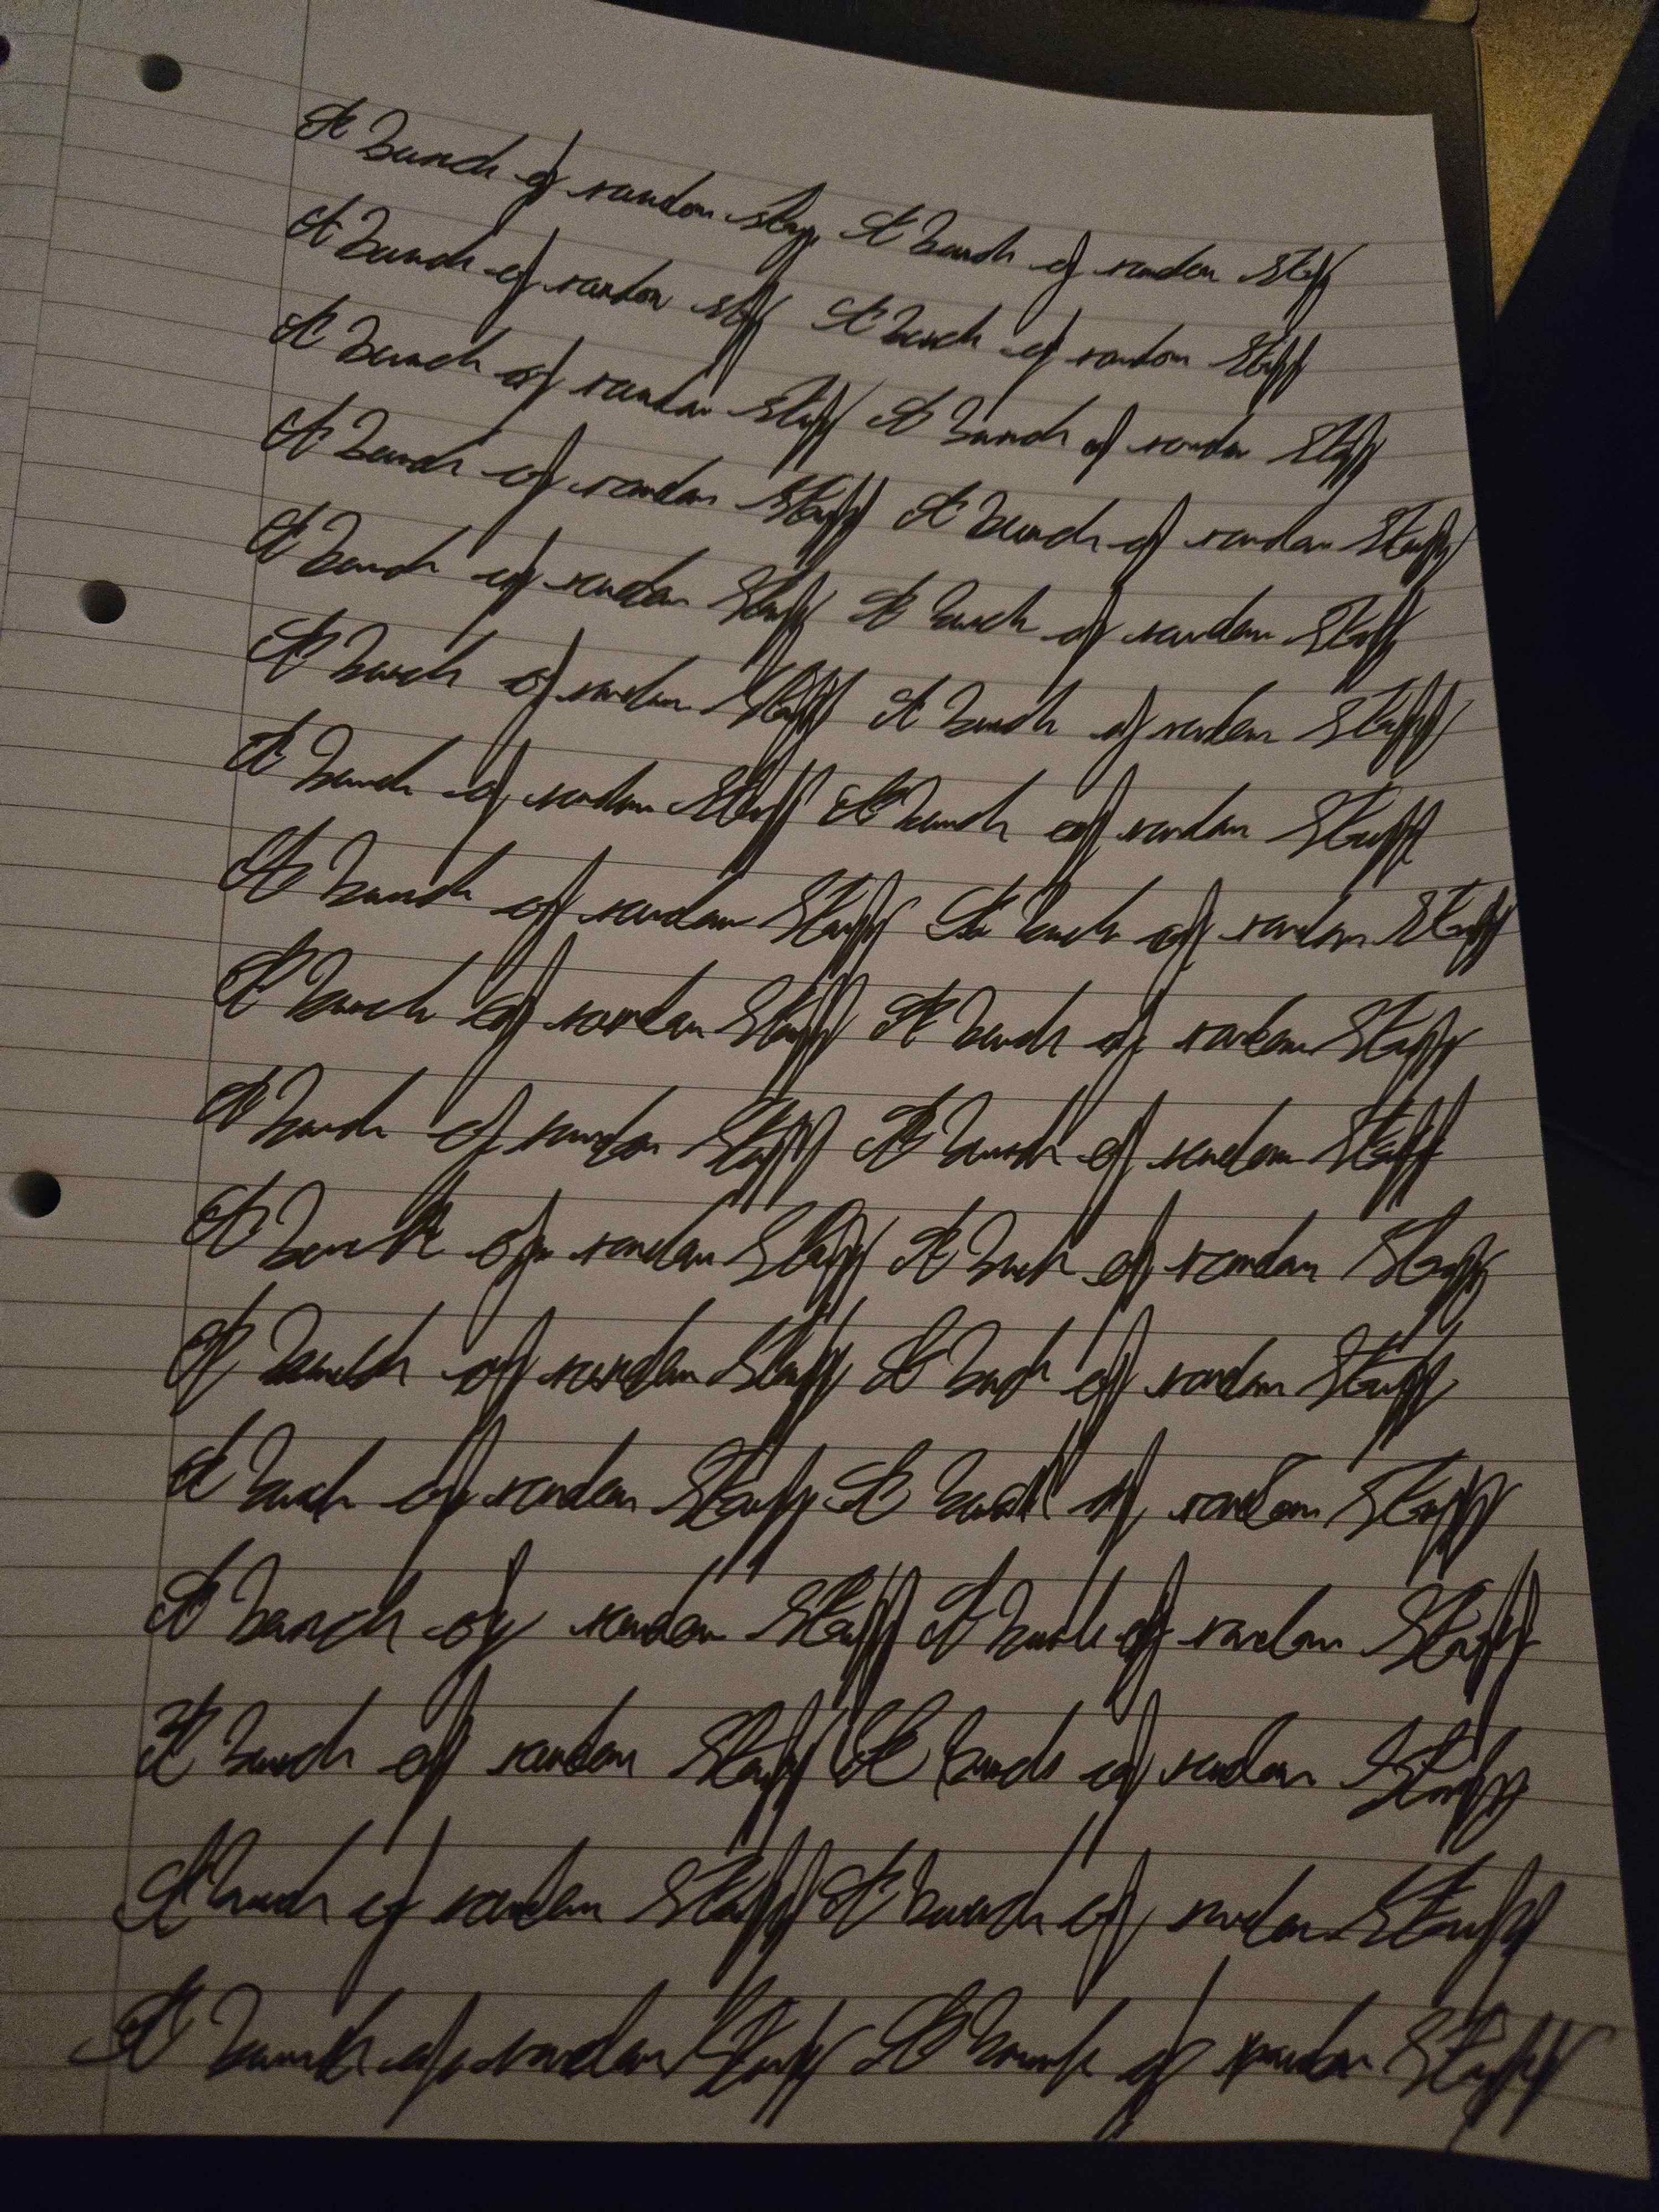 A bunch of random stuff A bunch of random stuff
A bunch of random stuff A bunch of random stuff
A bunch of random stuff A bunch of random stuff
A bunch of random stuff A bunch of random stuff
A bunch of random stuff A bunch of random stuff
A bunch of random stuff A bunch of random stuff
A bunch of random stuff A bunch of random stuff
A bunch of random stuff A bunch of random stuff
A bunch of random stuff A bunch of random stuff
A bunch of random stuff A bunch of random stuff
A bunch of random stuff A bunch of random stuff
A bunch of random stuff A bunch of random stuff
A bunch of random stuff A bunch of random stuff
A bunch of random stuff A bunch of random stuff
A bunch of random stuff A bunch of random stuff
A bunch of random stuff A bunch of random stuff
A bunch of random stuff A bunch of random stuff